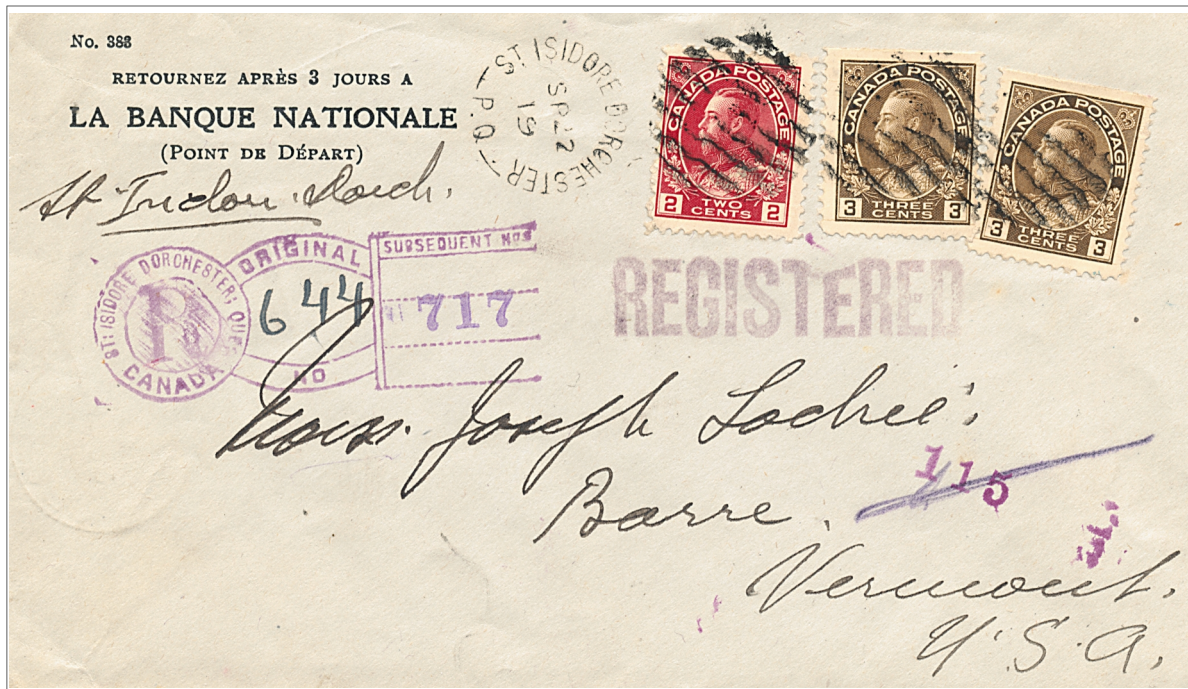 No. 388
RETOURNEZ APRÈS 3 JOURS A
LA BANQUE NATIONALE
(POINT DE DÉPART)
St Isidore Dorch.
ST ISIDORE DORCHESTER
SP 22
19
P.Q.
CANADA POSTAGE
2 TWO CENTS 2
CANADA POSTAGE
3 THREE CENTS 3
CANADA POSTAGE
3 THREE CENTS 3
ST. ISIDORE DORCHESTER, QUE.
R
CANADA
ORIGINAL
644
NO
SUBSEQUENT NOS
717
REGISTERED
Joseph
115
Barre.
Vermont.
U.S.A.